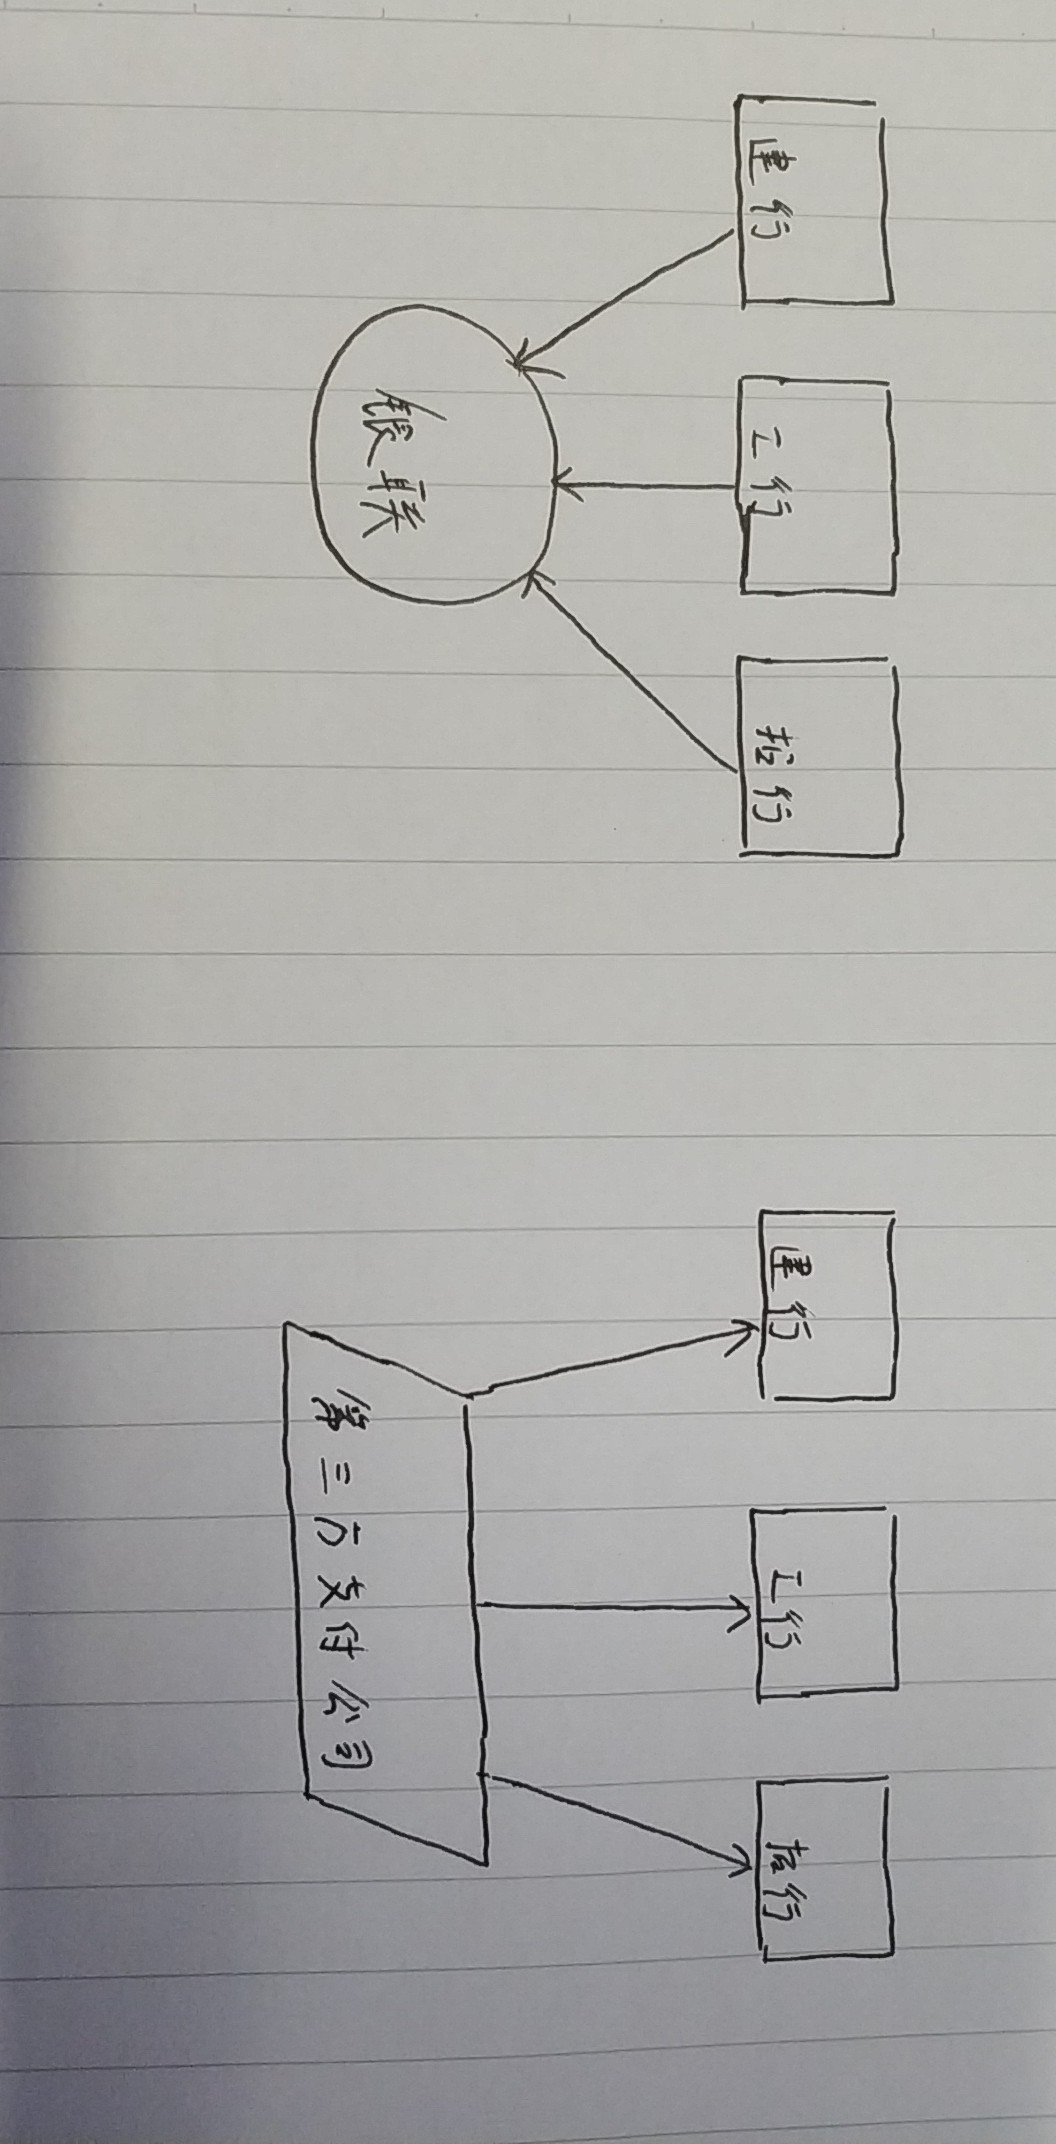 建行
工行
招行
银联
建行
工行
招行
第三方支付公司